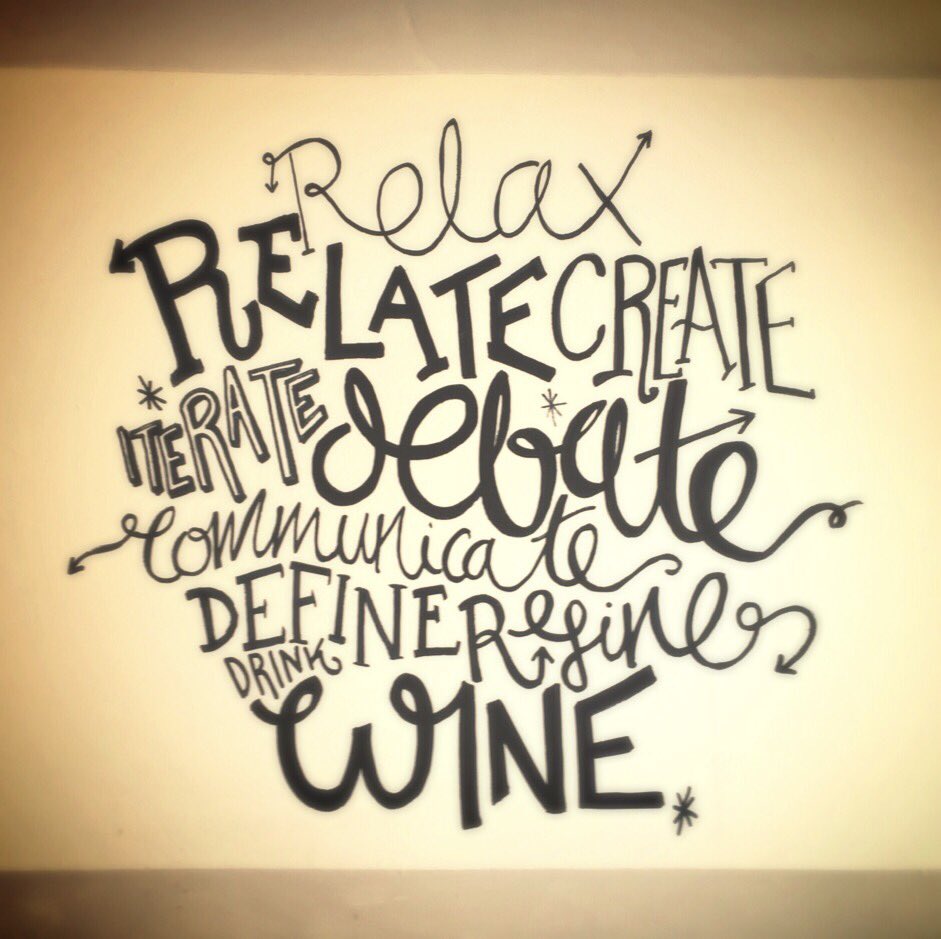 Relax
RELATE CREATE
ITERATE debate
communicate
DEFINE Refine
DRINK
WINE